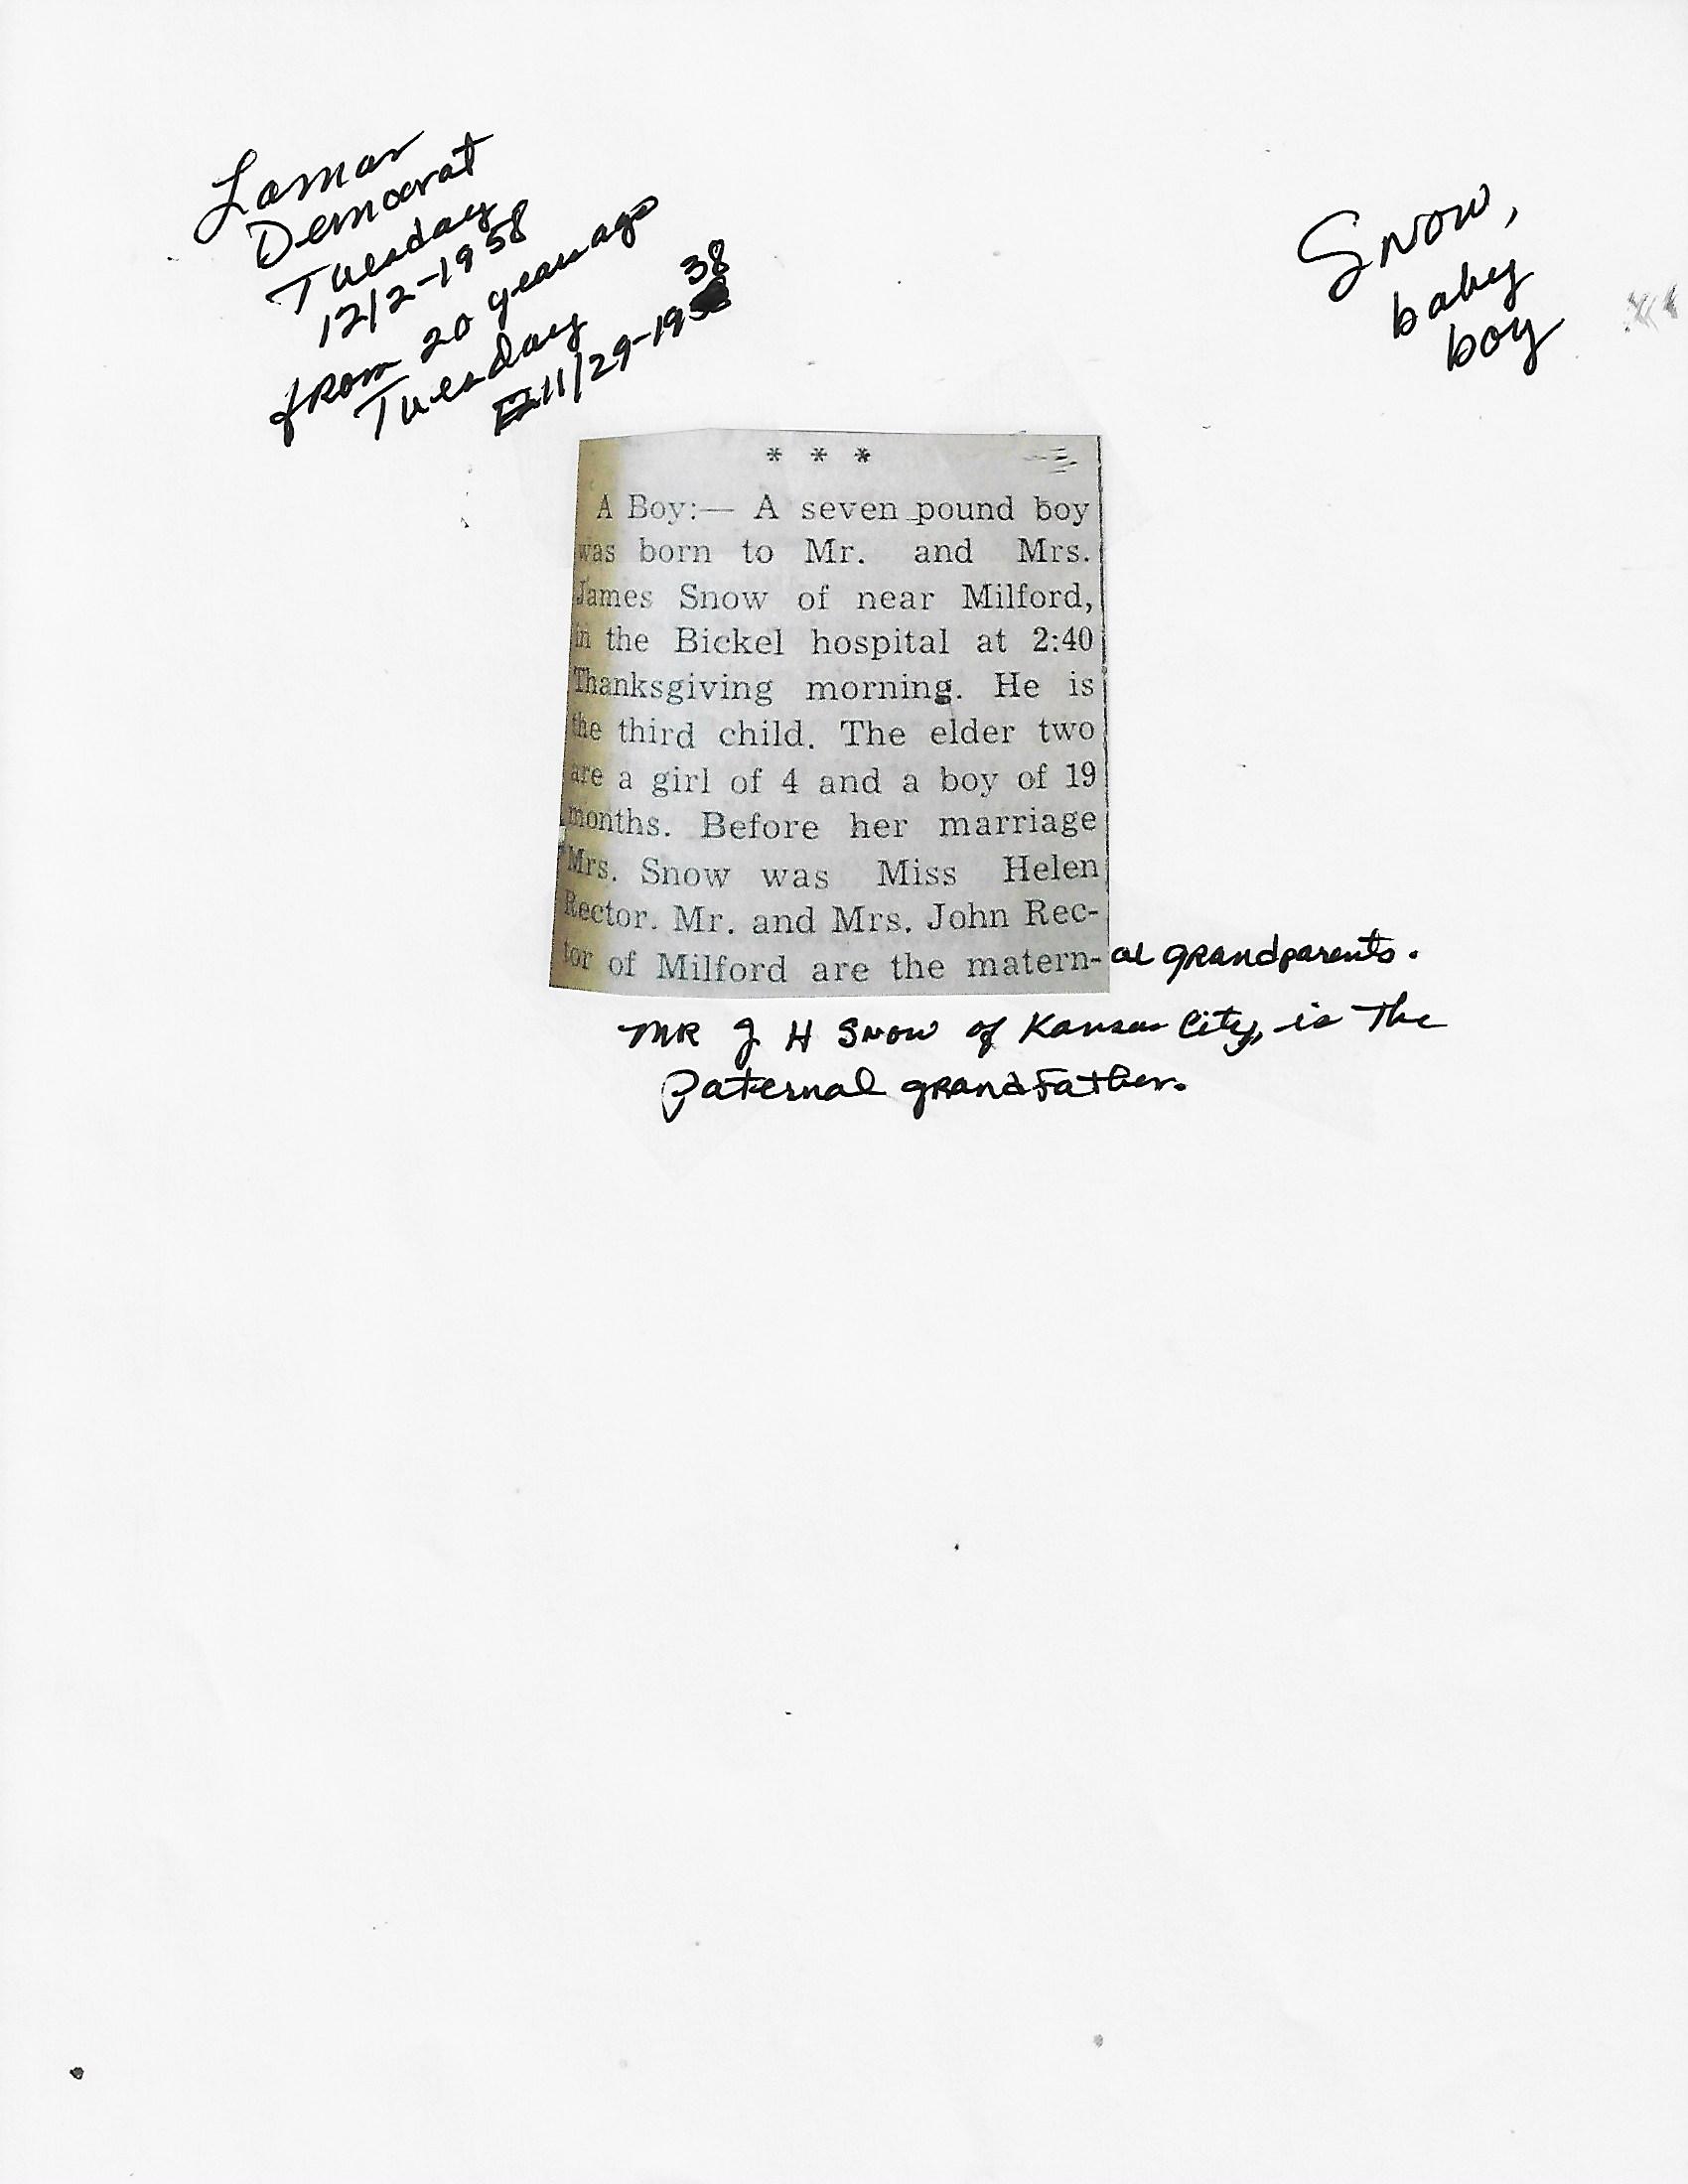 Lamar
Democrat
Tuesday
12/2-1958
from 20 years ago
Tuesday
11/29-1938
Snow,
baby
boy
* * *
A Boy:— A seven pound boy
was born to Mr. and Mrs.
James Snow of near Milford,
in the Bickel hospital at 2:40
Thanksgiving morning. He is
the third child. The elder two
are a girl of 4 and a boy of 19
months. Before her marriage
Mrs. Snow was Miss Helen
Rector. Mr. and Mrs. John Rec-
tor of Milford are the matern-al grandparents.
MR J H Snow of Kansas City, is The
Paternal grandfather.